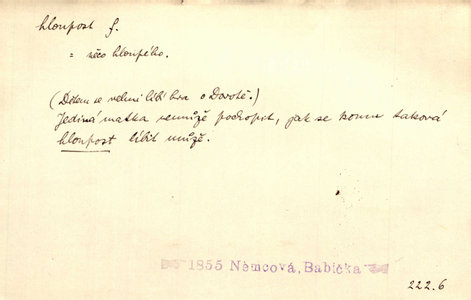 hloupost f.
= něco hloupého.
(Dětem se velmi líbí hra o Dorotě.)
Jediná matka nemůže pochopit, jak se komu taková
hloupost líbit může.
1855 Němcová, Babička
222.6